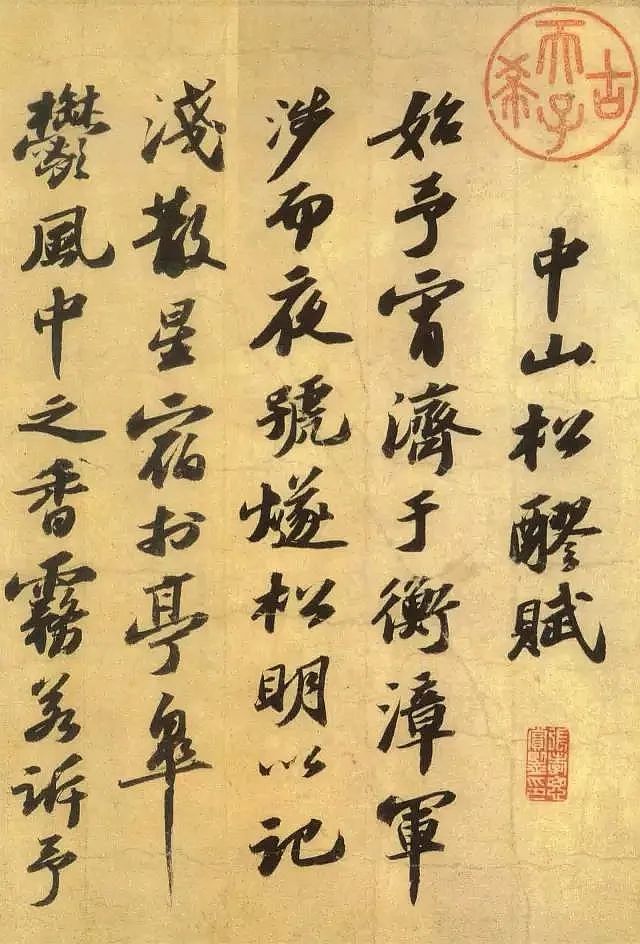 古希天子
中山松醪賦
張孝思
賞鑒印
始予宵濟于衡漳軍
涉而夜號燧松明以記
淺散星宿於亭皋
鬱風中之香霧若訴予